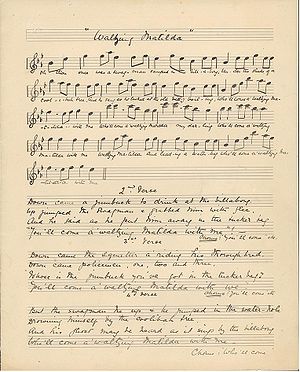 "Waltzing Matilda"
Oh there once was a swagman camped in a billabong, under the shade of a
coolibah tree, And he sang as he looked at his old billy boiling, Who'll come a waltzing Ma-
tilda with me Who'll come a waltzing Matilda my darling who'll come a waltzing
Matilda with me waltzing Matilda and leading a water bag who'll come a waltzing Ma-
tilda with me
2nd Verse
Down came a jumbuck to drink at the billabong
Up jumped the Swagman & grabbed him with glee
And he said as he put him away in the tucker bag
"You'll come a waltzing Matilda with me"
Chorus: You'll come etc
3rd Verse
Down came the Squatter a riding his thoroughbred.
Down came policemen one two and three
Whose is the jumbuck you've got in the tucker bag?
You'll come a waltzing Matilda with we.
Chorus: You'll come etc
4th Verse
But the swagman he up & he jumped in the water-hole
Drowning himself by the coolibah tree
And his ghost may be heard as it sings by the billabong
Who'll come a waltzing Matilda with me
Chorus: Who'll come